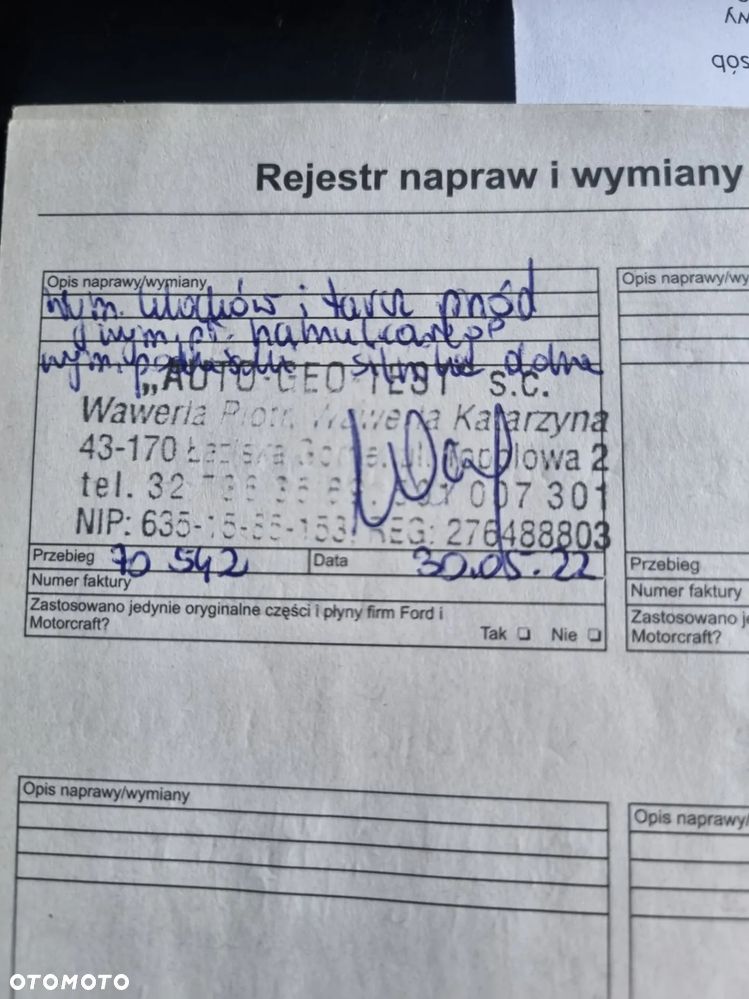 NY
sób
Rejestr napraw i wymiany
Opis naprawy/wymiany
wym. klocków i tarcz przód
wym. pł. hamulcowego
wym. dolna
„AUTO-GEO-TEST" S.C.
Waweria Piotr, Waweria Katarzyna
43-170 Łaziska Górne, ul. 2
tel. 32 007 301
NIP: REG: 276488803
Przebieg 70 542 Data 30.05.22
Numer faktury
Zastosowano jedynie oryginalne części i płyny firm Ford i
Motorcraft?
Tak Nie
Opis naprawy/wy
Przebieg
Numer faktury
Zastosowano je
Motorcraft?
Opis naprawy/wymiany
Opis naprawy/
OTOMOTO